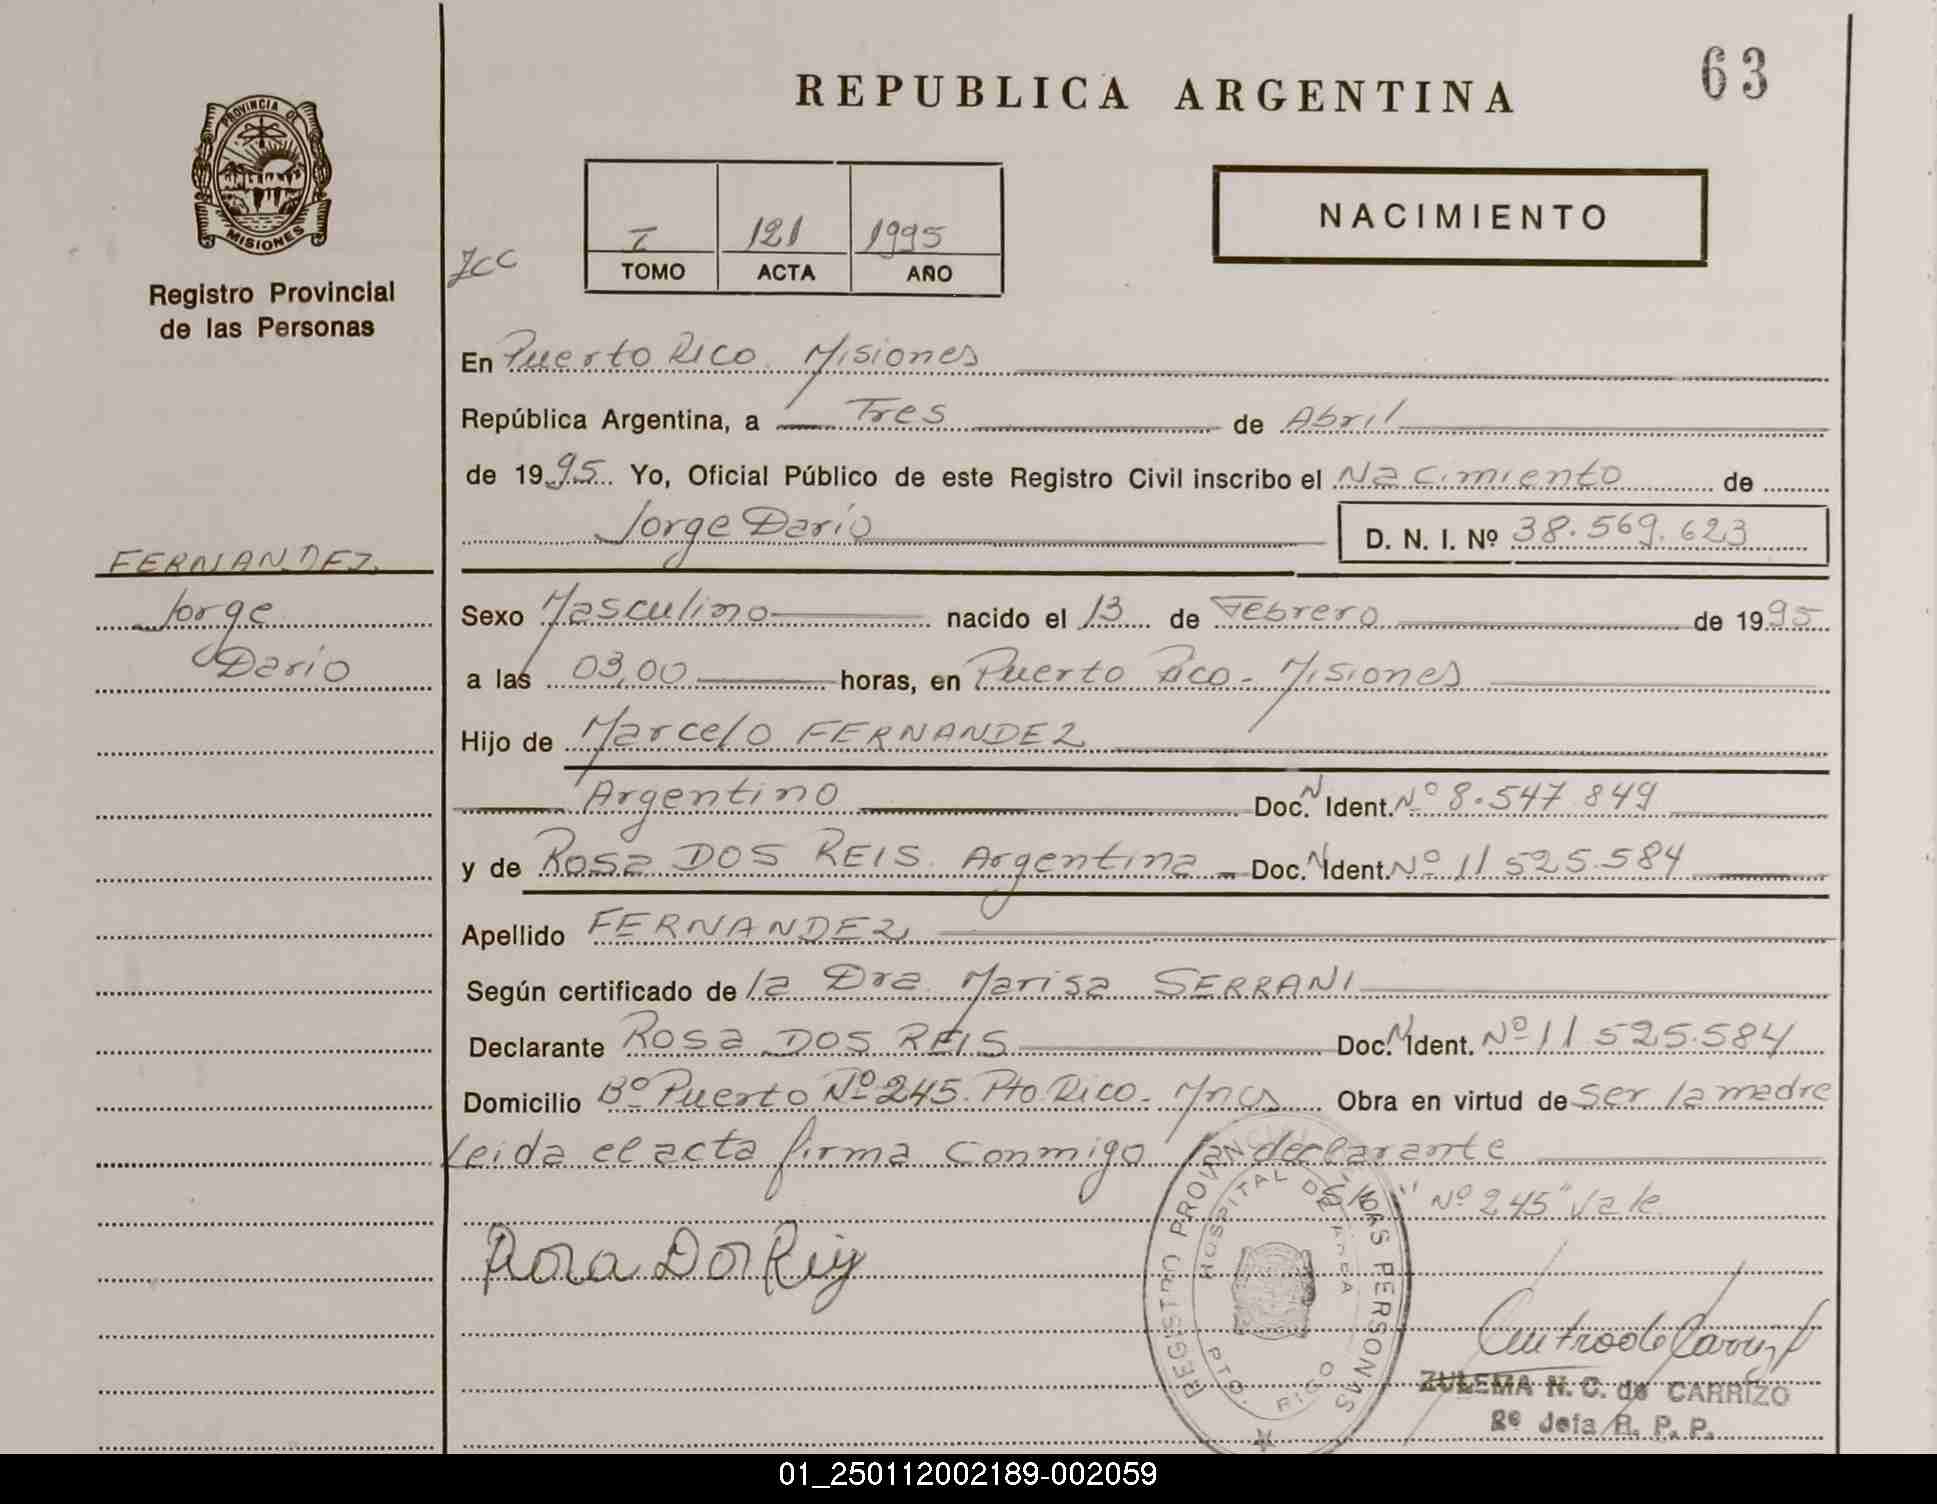 63
REPUBLICA ARGENTINA
PROVINCIA DE
MISIONES
Registro Provincial
de las Personas
NACIMIENTO
I 121 1995
TOMO ACTA AÑO
JCC
En Puerto Rico. Misiones
República Argentina, a Tres de Abril
de 1995. Yo, Oficial Público de este Registro Civil inscribo el Nacimiento de
Jorge Darío D. N. I. Nº 38.569.623
FERNANDEZ.
Jorge
Dario
Sexo Masculino nacido el 13 de Febrero de 1995
a las 03,00 horas, en Puerto Rico - Misiones
Hijo de Marcelo FERNANDEZ
Argentino Doc. N Ident. Nº 8.547.849
y de Rosa DOS REIS. Argentina - Doc. N Ident. Nº 11 525.584
Apellido FERNANDEZ
Según certificado de la Dra. Marisa SERRANI
Declarante Rosa DOS REIS Doc. N Ident. Nº 11 525.584
Domicilio Bº Puerto Nº 245. Pto Rico. Mnes Obra en virtud de ser la madre
Leida el acta firma conmigo la declarante
"Nº 245" Vale
Rosa Dos Reis
REGISTRO PROVINCIAL DE LAS PERSONAS
HOSPITAL DE AREA
PTO. RICO
ZULEMA N. C. de CARRIZO
2º Jefa R. P. P.
01_250112002189-002059